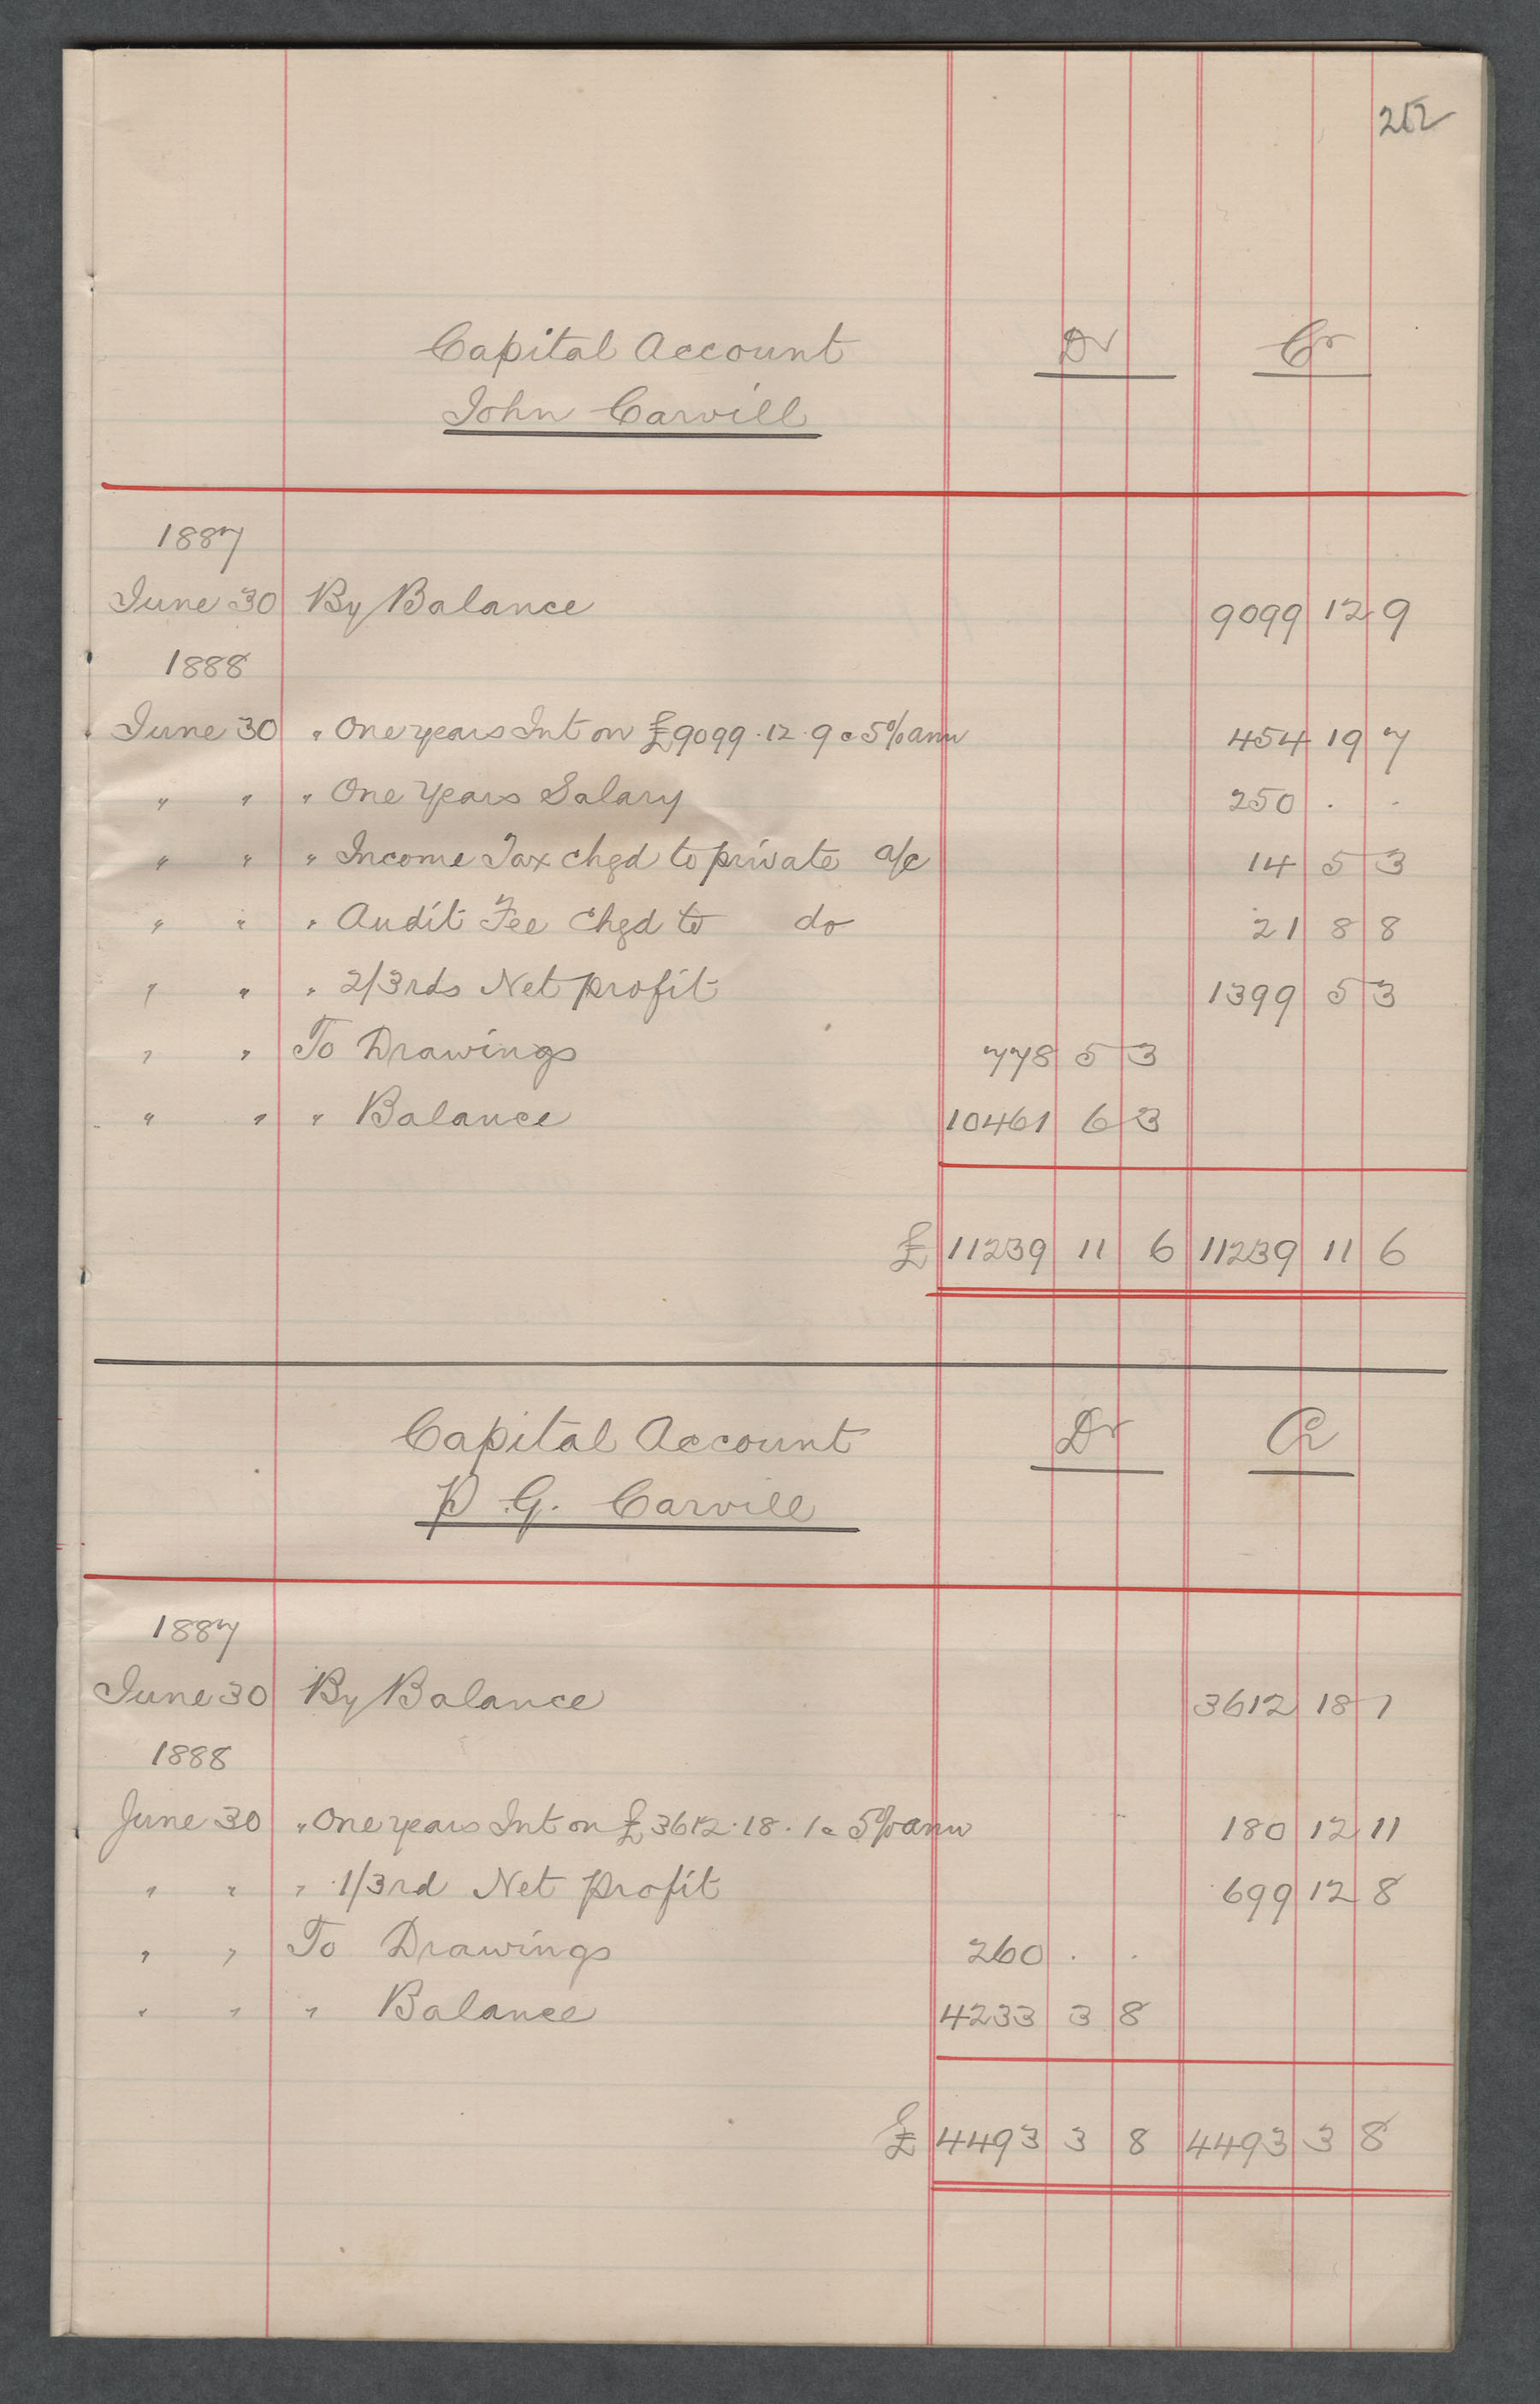 252
Capital Account Dr Cr
John Carvill
1887
June 30 By Balance 9099 12 9
1888
June 30 " One years Int on £9099.12.9 @ 5% ann 454 19 7
" " " One Years Salary 250 . .
" " " Income Tax chgd to private a/c 14 5 3
" " " Audit Fee Chgd to do 21 8 8
" " " 2/3rds Net profit 1399 5 3
" " To Drawings 778 5 3
" " " Balance 10461 6 3
£ 11239 11 6 11239 11 6
Capital Account Dr Cr
P. G. Carvill
1887
June 30 By Balance 3612 18 1
1888
June 30 " One years Int on £3612.18.1 @ 5% ann 180 12 11
" " " 1/3rd Net Profit 699 12 8
" " To Drawings 260 . .
" " " Balance 4233 3 8
£ 4493 3 8 4493 3 8